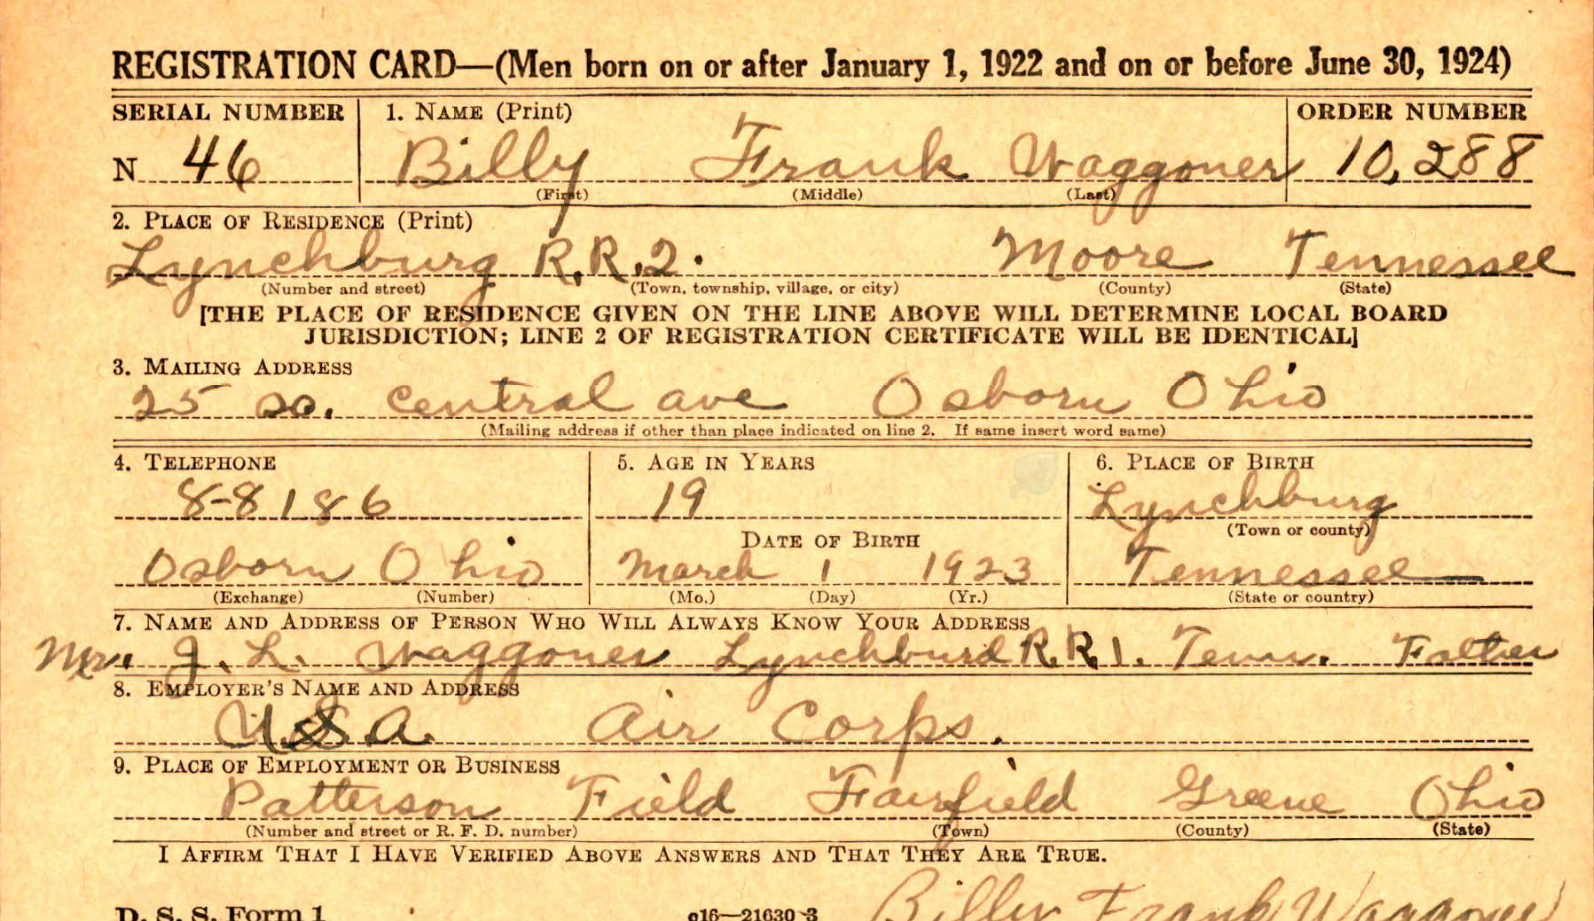 REGISTRATION CARD—(Men born on or after January 1, 1922 and on or before June 30, 1924)
SERIAL NUMBER 1. NAME (Print) ORDER NUMBER
N 46 Billy Frank Waggoner 10,288
(First) (Middle) (Last)
2. PLACE OF RESIDENCE (Print)
Lynchburg R.R.2. Moore Tennessee
(Number and street) (Town, township, village, or city) (County) (State)
[THE PLACE OF RESIDENCE GIVEN ON THE LINE ABOVE WILL DETERMINE LOCAL BOARD
JURISDICTION; LINE 2 OF REGISTRATION CERTIFICATE WILL BE IDENTICAL]
3. MAILING ADDRESS
25 so. central ave Osborn Ohio
(Mailing address if other than place indicated on line 2. If same insert word same)
4. TELEPHONE 5. AGE IN YEARS 6. PLACE OF BIRTH
8-8186 19 Lynchburg
(Town or county)
DATE OF BIRTH
Osborn Ohio March 1 1923 Tennessee
(Exchange) (Number) (Mo.) (Day) (Yr.) (State or country)
7. NAME AND ADDRESS OF PERSON WHO WILL ALWAYS KNOW YOUR ADDRESS
Mr. J. L. Waggoner Lynchburd R.R.1. Tenn. Father
8. EMPLOYER'S NAME AND ADDRESS
U.S.A. Air Corps.
9. PLACE OF EMPLOYMENT OR BUSINESS
Patterson Field Fairfield Greene Ohio
(Number and street or R. F. D. number) (Town) (County) (State)
I AFFIRM THAT I HAVE VERIFIED ABOVE ANSWERS AND THAT THEY ARE TRUE.
D. S. S. Form 1 c16—21630-3 Billy Frank Waggoner